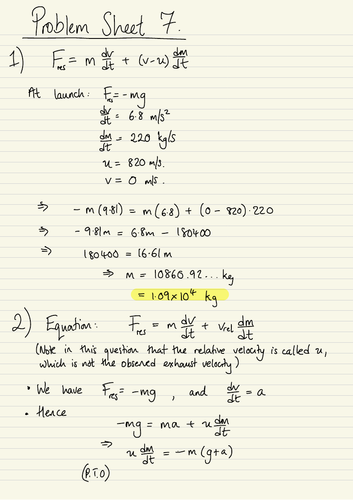 Problem Sheet 7.
1) F_res = m dv/dt + (v-u) dm/dt
At launch: F_res = -mg
dv/dt = 6.8 m/s²
dm/dt = 220 kg/s
u = 820 m/s.
v = 0 m/s.
⇒ -m(9.81) = m(6.8) + (0 - 820)·220
⇒ -9.81m = 6.8m - 180400
⇒ 180400 = 16.61m
⇒ m = 10860.92... kg
= 1.09×10⁴ kg
2) Equation: F_res = m dv/dt + v_rel dm/dt
(Note in this question that the relative velocity is called u,
which is not the observed exhaust velocity)
• We have F_res = -mg, and dv/dt = a
• Hence
-mg = ma + u dm/dt
⇒ u dm/dt = -m(g+a)
(P.T.O)